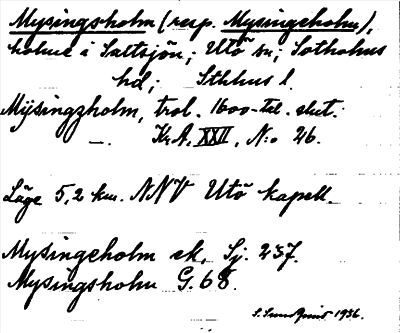 Mysingsholm (resp. Mysingeholm),
holme i Saltsjön; Utö sn; Sotholms
hd; Sthlms l.
Mÿsingzholm, trol. 1600-tal. slut.
—. Kr.A. XXII, N:o 26.
Läge 5,2 km. NNV Utö kapell.
Mysingeholm ek. Sj. 237.
Mysingsholm G. 68.
1936.